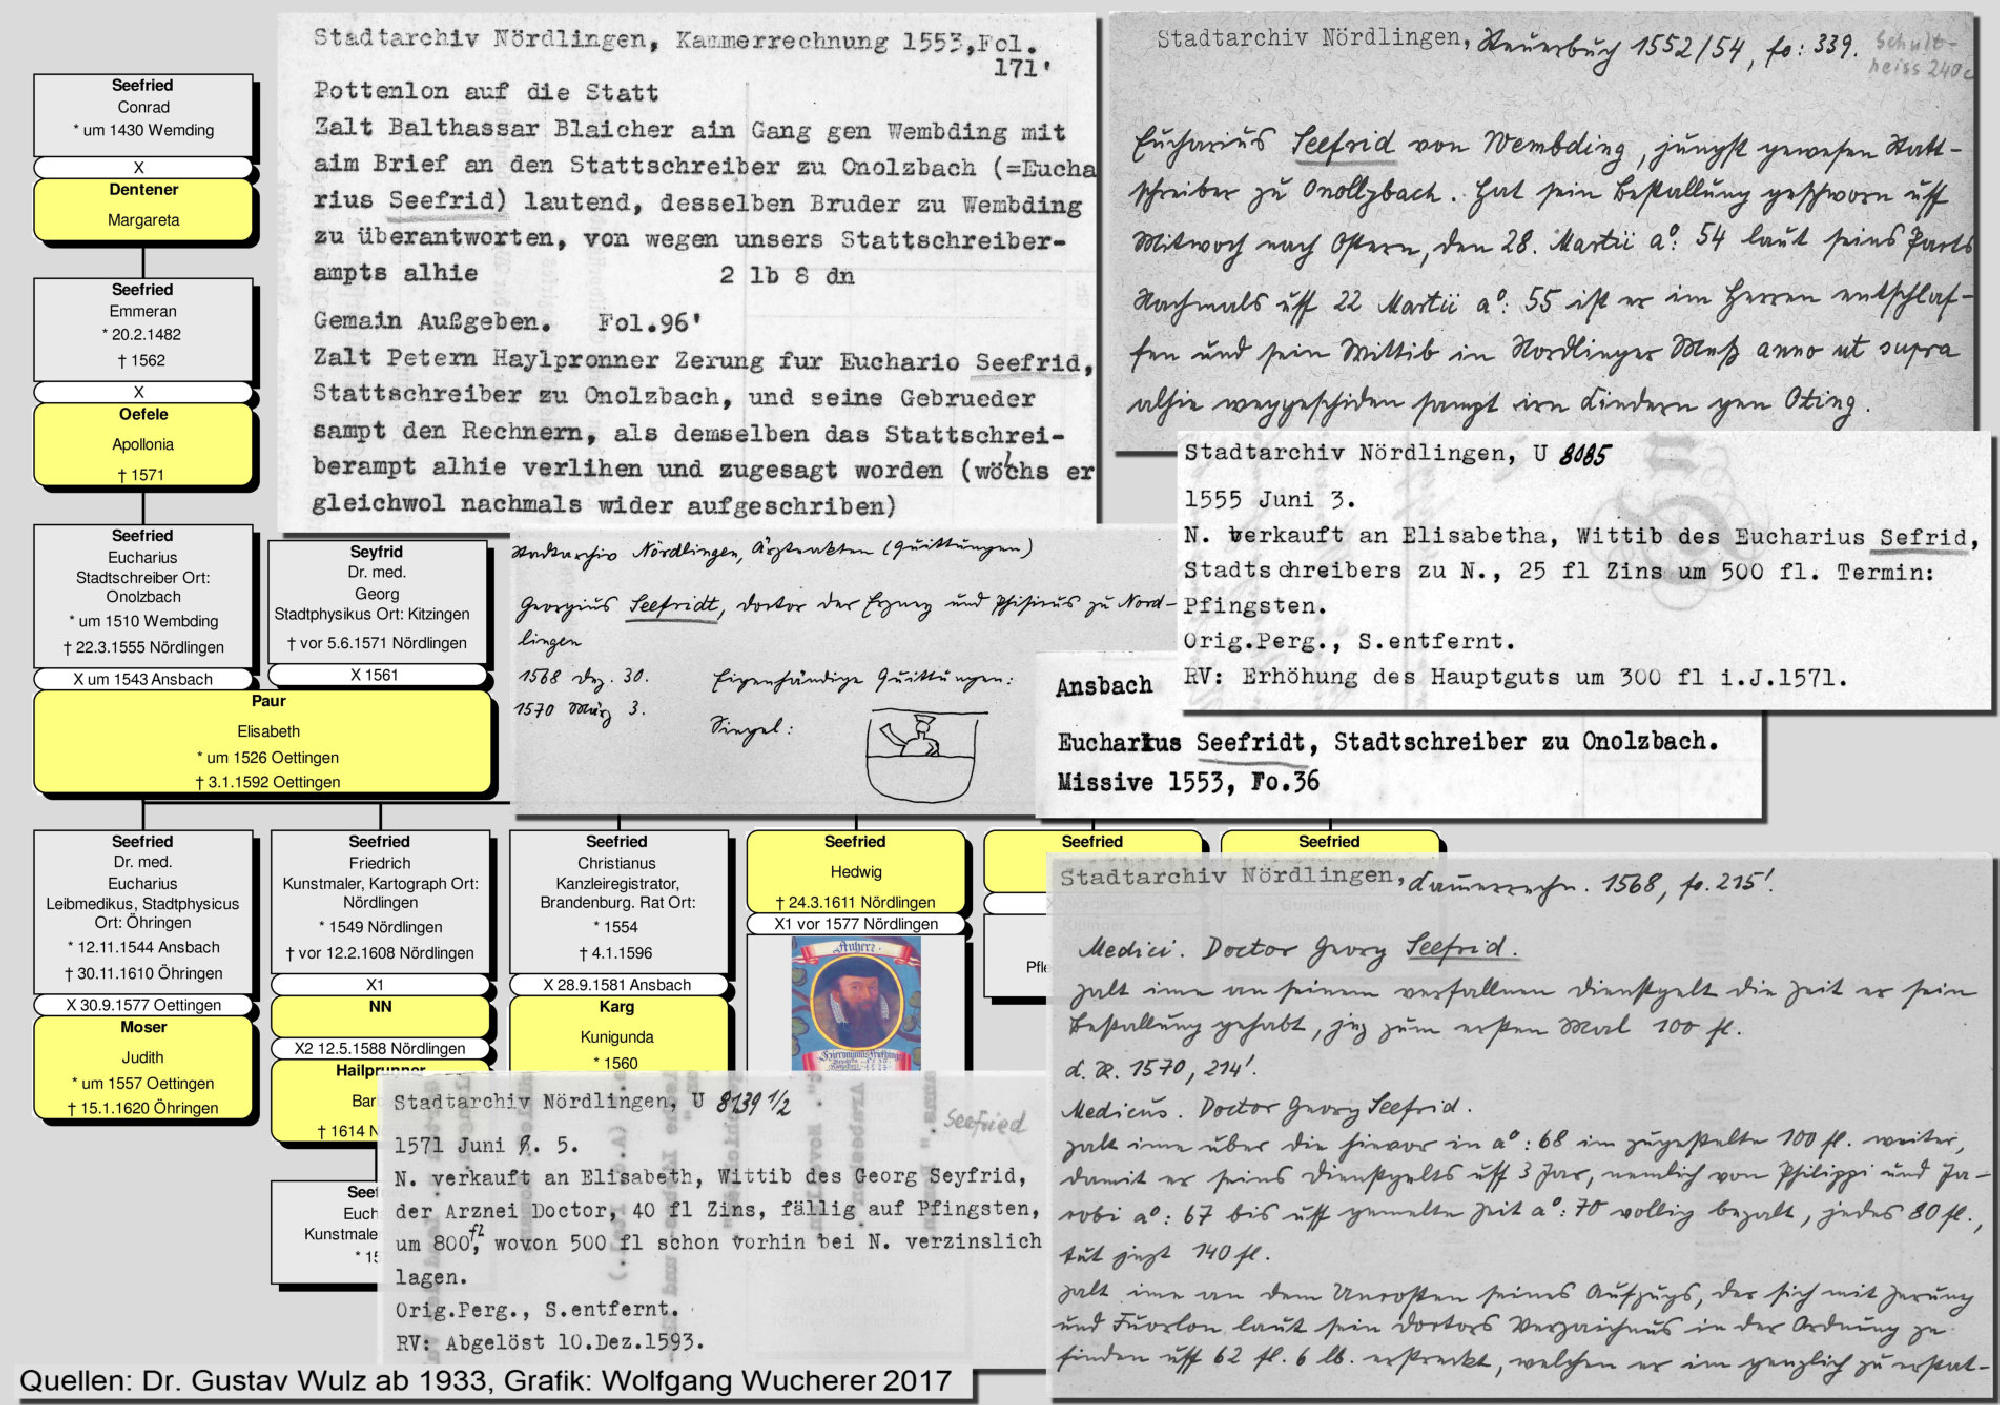 Seefried
Conrad
* um 1430 Wemding
X
Dentener
Margareta
Seefried
Emmeran
* 20.2.1482
† 1562
X
Oefele
Apollonia
† 1571
Seefried
Eucharius
Stadtschreiber Ort:
Onolzbach
* um 1510 Wembding
† 22.3.1555 Nördlingen
X um 1543 Ansbach
Seyfrid
Dr. med.
Georg
Stadtphysikus Ort: Kitzingen
† vor 5.6.1571 Nördlingen
X 1561
Paur
Elisabeth
* um 1526 Oettingen
† 3.1.1592 Oettingen
Seefried
Dr. med.
Eucharius
Leibmedikus, Stadtphysicus
Ort: Öhringen
* 12.11.1544 Ansbach
† 30.11.1610 Öhringen
X 30.9.1577 Oettingen
Moser
Judith
* um 1557 Oettingen
† 15.1.1620 Öhringen
Seefried
Friedrich
Kunstmaler, Kartograph Ort:
Nördlingen
* 1549 Nördlingen
† vor 12.2.1608 Nördlingen
X1
NN
X2 12.5.1588 Nördlingen
Hailprunner
Bar
† 1614 N
Seef
Euch
Kunstmale
* 15
Seefried
Christianus
Kanzleiregistrator,
Brandenburg. Rat Ort:
* 1554
† 4.1.1596
X 28.9.1581 Ansbach
Karg
Kunigunda
* 1560
Seefried
Hedwig
† 24.3.1611 Nördlingen
X1 vor 1577 Nördlingen
Anherr.
Seefried
Pfle
Seefried
Stadtarchiv Nördlingen, Kammerrechnung 1553, Fol.
171'
Pottenlon auf die Statt
Zalt Balthassar Blaicher ain Gang gen Wembding mit
aim Brief an den Stattschreiber zu Onolzbach (=Eucha
rius Seefrid) lautend, desselben Bruder zu Wembding
zu überantworten, von wegen unsers Stattschreiber-
ampts alhie 2 lb 8 dn
Gemain Außgeben. Fol.96'
Zalt Petern Haylpronner Zerung fur Euchario Seefrid,
Stattschreiber zu Onolzbach, und seine Gebrueder
sampt den Rechnern, als demselben das Stattschrei-
berampt alhie verlihen und zugesagt worden (wölchs er
gleichwol nachmals wider aufgeschriben)
Stadtarchiv Nördlingen, Steuerbuch 1552/54, fo: 339.
Schult-
heiss 240c
Eucharius Seefrid von Wembding, jüngst gewesen Statt-
schreiber zu Onollzbach. Hat sein Bestallung geschworn uff
Mitwoch nach Ostern, den 28. Martii a°: 54 laut seins Pacts
Nachmals uff 22 Martii a°: 55 ist er im Herren entschlaf-
fen und sein Wittib in Nordlinger Meß anno ut supra
alhie weggeschiden sampt irn Kindern gen Oting.
Stadtarchiv Nördlingen, U 8085
1555 Juni 3.
N. verkauft an Elisabetha, Wittib des Eucharius Sefrid,
Stadtschreibers zu N., 25 fl Zins um 500 fl. Termin:
Pfingsten.
Orig.Perg., S.entfernt.
RV: Erhöhung des Hauptguts um 300 fl i.J.1571.
Stadtarchiv Nördlingen, Ärzteakten (Quittungen)
Georgius Seefridt, doctor der Erzney und Phisicus zu Nord-
lingen
1568 Dez. 30. Eigenhändige Quittungen:
1570 März 3.
Siegel:
Ansbach
Eucharius Seefridt, Stadtschreiber zu Onolzbach.
Missive 1553, Fo.36
Stadtarchiv Nördlingen, Kammerrechn. 1568, fo. 215'.
Medici. Doctor Georg Seefrid.
zalt ime an seinem verfallnen Dienstgelt die Zeit er sein
Bestallung gehabt, jez zum ersten Mal 100 fl.
K. R. 1570, 214'.
Medicus. Doctor Georg Seefrid.
zalt ime über die hievor in a°: 68 im zugestelte 100 fl. weiter,
damit er seins Dienstgelts uff 3 Jar, nemlich von Philippi und Ja-
cobi a°: 67 bis uff gemelte Zeit a°: 70 vollig bezalt, jedes 80 fl.,
tut jezt 140 fl.
zalt ime an dem Uncosten seines Aufzugs, der sich mit Zerung
und Fuorlon laut sein Doctors Verzaichnus in der Ordnung ze
finden uff 62 fl. 6 lb. erstreckt, welchen er im genzlich zu erstat-
Stadtarchiv Nördlingen, U 8139 1/2
Seefried
1571 Juni 5.
N. verkauft an Elisabeth, Wittib des Georg Seyfrid,
der Arznei Doctor, 40 fl Zins, fällig auf Pfingsten,
um 800 fl, wovon 500 fl schon vorhin bei N. verzinslich
lagen.
Orig.Perg., S.entfernt.
RV: Abgelöst 10.Dez.1593.
Quellen: Dr. Gustav Wulz ab 1933, Grafik: Wolfgang Wucherer 2017